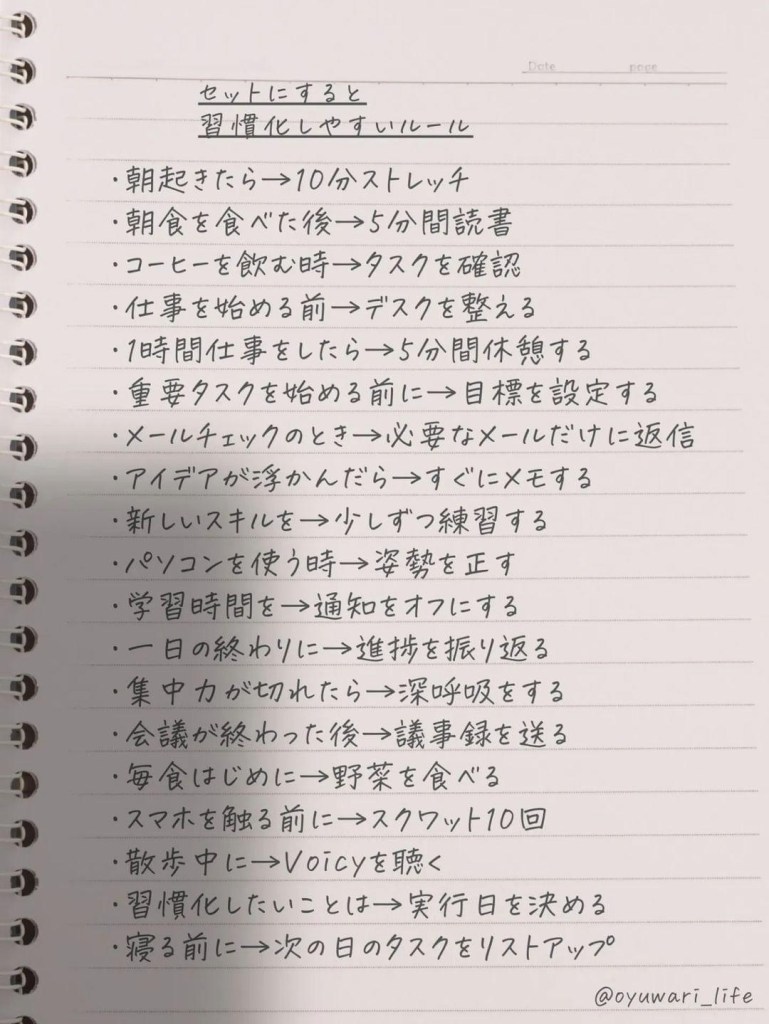 Date page
セットにすると
習慣化しやすいルール
・朝起きたら→10分ストレッチ
・朝食を食べた後→5分間読書
・コーヒーを飲む時→タスクを確認
・仕事を始める前→デスクを整える
・1時間仕事をしたら→5分間休憩する
・重要タスクを始める前に→目標を設定する
・メールチェックのとき→必要なメールだけに返信
・アイデアが浮かんだら→すぐにメモする
・新しいスキルを→少しずつ練習する
・パソコンを使う時→姿勢を正す
・学習時間を→通知をオフにする
・一日の終わりに→進捗を振り返る
・集中力が切れたら→深呼吸をする
・会議が終わった後→議事録を送る
・毎食はじめに→野菜を食べる
・スマホを触る前に→スクワット10回
・散歩中に→Voicyを聴く
・習慣化したいことは→実行日を決める
・寝る前に→次の日のタスクをリストアップ
@oyuwari_life